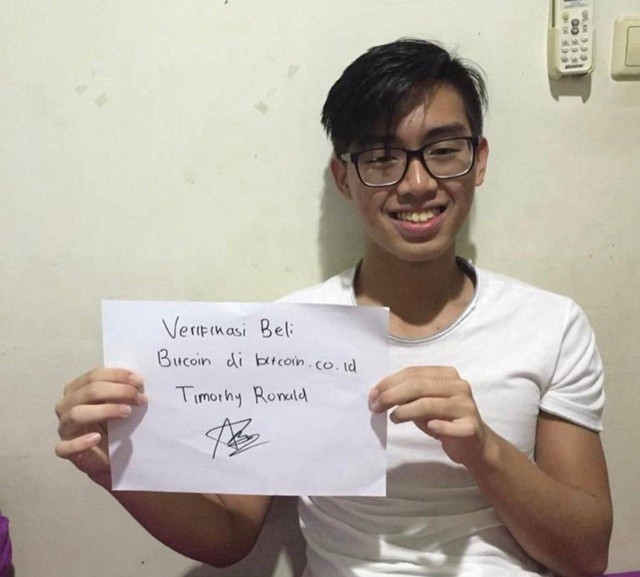 Verifikasi Beli
Bitcoin di bitcoin.co.id
Timothy Ronald